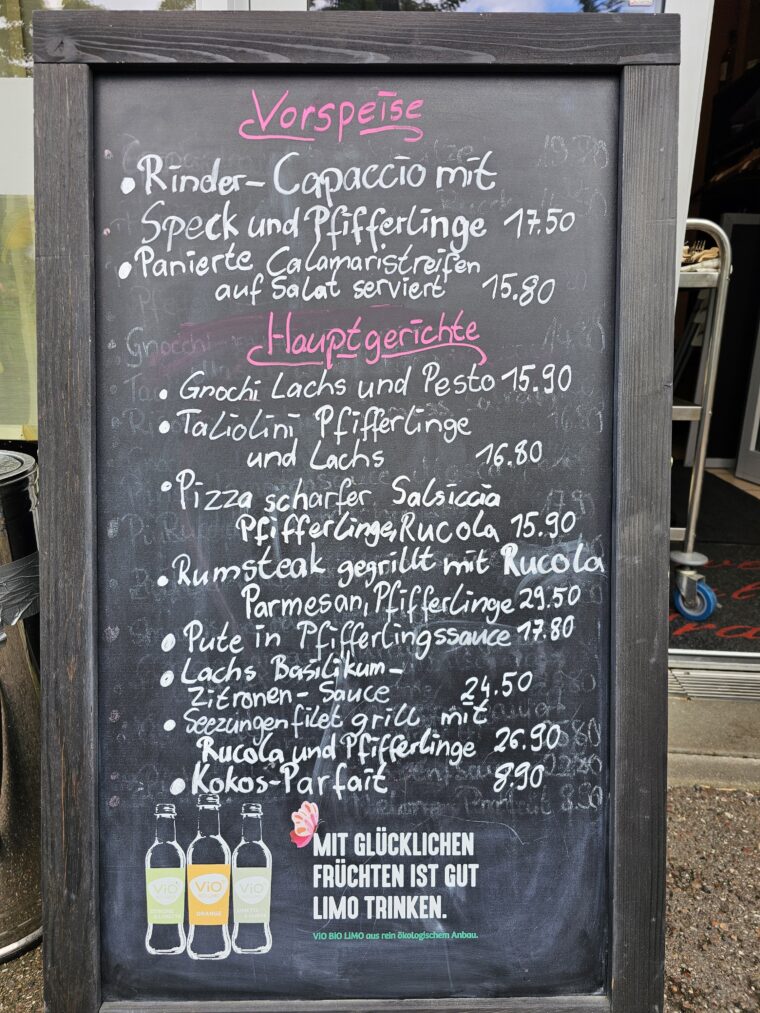 Vorspeise
• Rinder-Capaccio mit
Speck und Pfifferlinge 17.50
• Panierte Calamaristreifen
auf Salat serviert 15.80
Hauptgerichte
• Grochi Lachs und Pesto 15.90
• Taliolini Pfifferlinge
und Lachs 16.80
• Pizza scharfer Salsiccia
Pfifferlinge, Rucola 15.90
• Rumsteak gegrillt mit Rucola
Parmesan, Pfifferlinge 29.50
• Pute in Pfifferlingssauce 17.80
• Lachs Basilikum-
Zitronen-Sauce 24.50
• Seezungenfilet grill mit
Rucola und Pfifferlinge 26.90
• Kokos-Parfait 8.90
ViO ViO ViO
ORANGE
MIT GLÜCKLICHEN
FRÜCHTEN IST GUT
LIMO TRINKEN.
ViO BiO LiMO aus rein ökologischem Anbau.